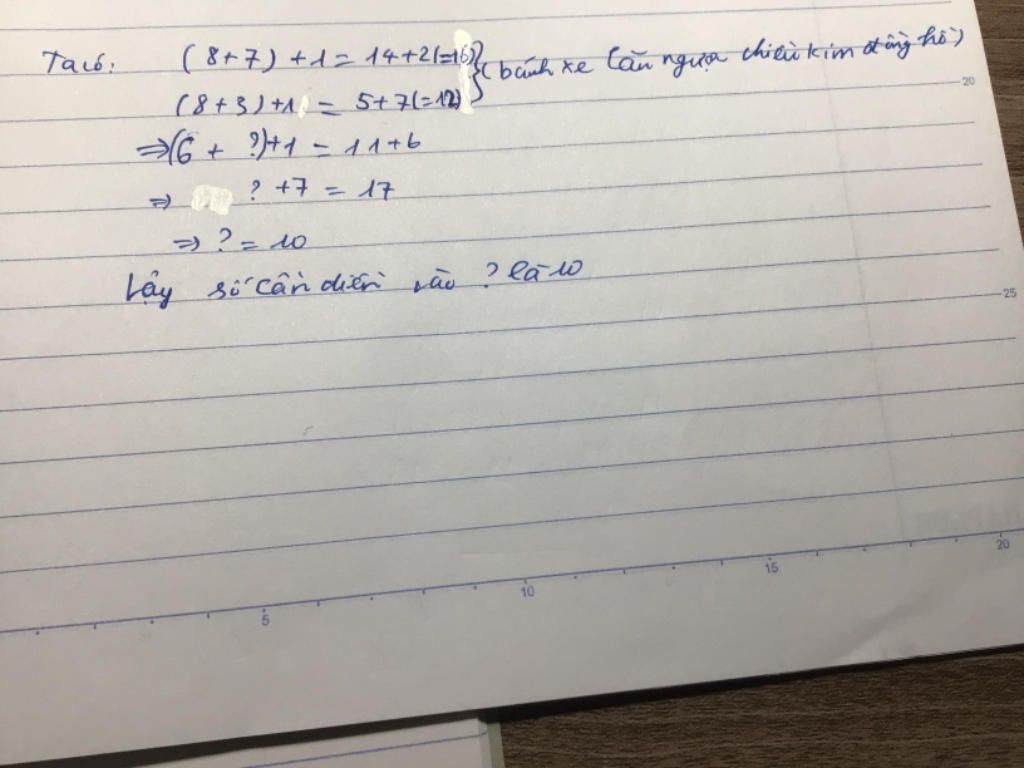 Ta có: (8+7) +1 = 14+2(=16) } (bánh xe lăn ngược chiều kim đồng hồ)
(8+3)+1 = 5+7(=12)
⇒(6 + ?)+1 = 11+6
⇒ ? +7 = 17
⇒ ? = 10
Vậy số cần điền vào ? là 10
20
25
5 10 15 20